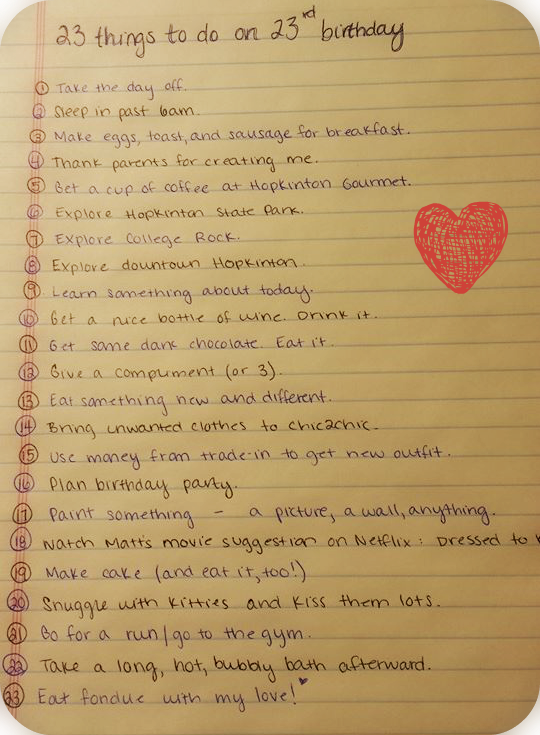 23 things to do on 23rd birthday
1 Take the day off.
2 Sleep in past 6am.
3 Make eggs, toast, and sausage for breakfast.
4 Thank parents for creating me.
5 Get a cup of coffee at Hopkinton Gourmet.
6 Explore Hopkinton State Park.
7 Explore College Rock.
8 Explore downtown Hopkinton.
9 Learn something about today.
10 Get a nice bottle of wine. Drink it.
11 Get some dark chocolate. Eat it.
12 Give a compliment (or 3).
13 Eat something new and different.
14 Bring unwanted clothes to chic2chic.
15 Use money from trade-in to get new outfit.
16 Plan birthday party.
17 Paint something - a picture, a wall, anything.
18 Watch Matt's movie suggestion on Netflix: Dressed to
19 Make cake (and eat it, too!)
20 Snuggle with kitties and kiss them lots.
21 Go for a run/go to the gym.
22 Take a long, hot, bubbly bath afterward.
23 Eat fondue with my love!